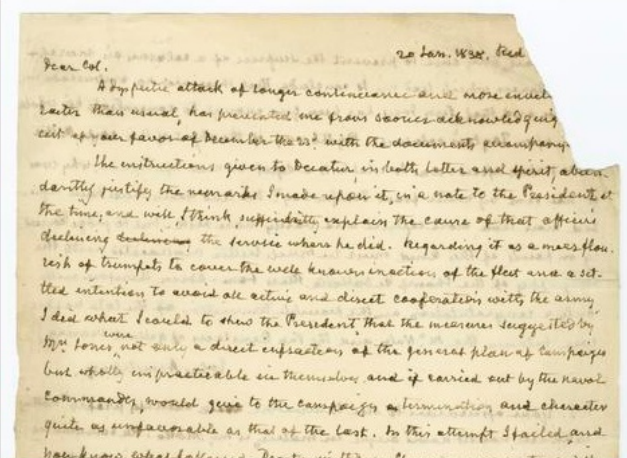 20 Jan. 1838. Red
Dear Col.
A dyspeptic attack of longer continuance and more
than usual, has prevented me from sooner acknowledging
of your favor of December the 23d with the documents accompany
The instructions given to Decatur, in both letter and spirit, abun-
dantly justify the remarks I made upon it, in a note to the President at
the time, and will, I think, sufficiently explain the cause of that officer's
declining the service where he did. Regarding it as a mere flou-
rish of trumpets to cover the well known inaction of the fleet and a set-
tled intention to avoid all active and direct cooperation with the army,
I did what I could to show the President, that the measures suggested by
Mr. Jones, were not only a direct infraction of the general plan of Campaign
but wholly impracticable in themselves and if carried out by the naval
commander, would give to the campaign a termination and character
quite as unfavorable as that of the last. In this attempt I failed, and
you know what followed.